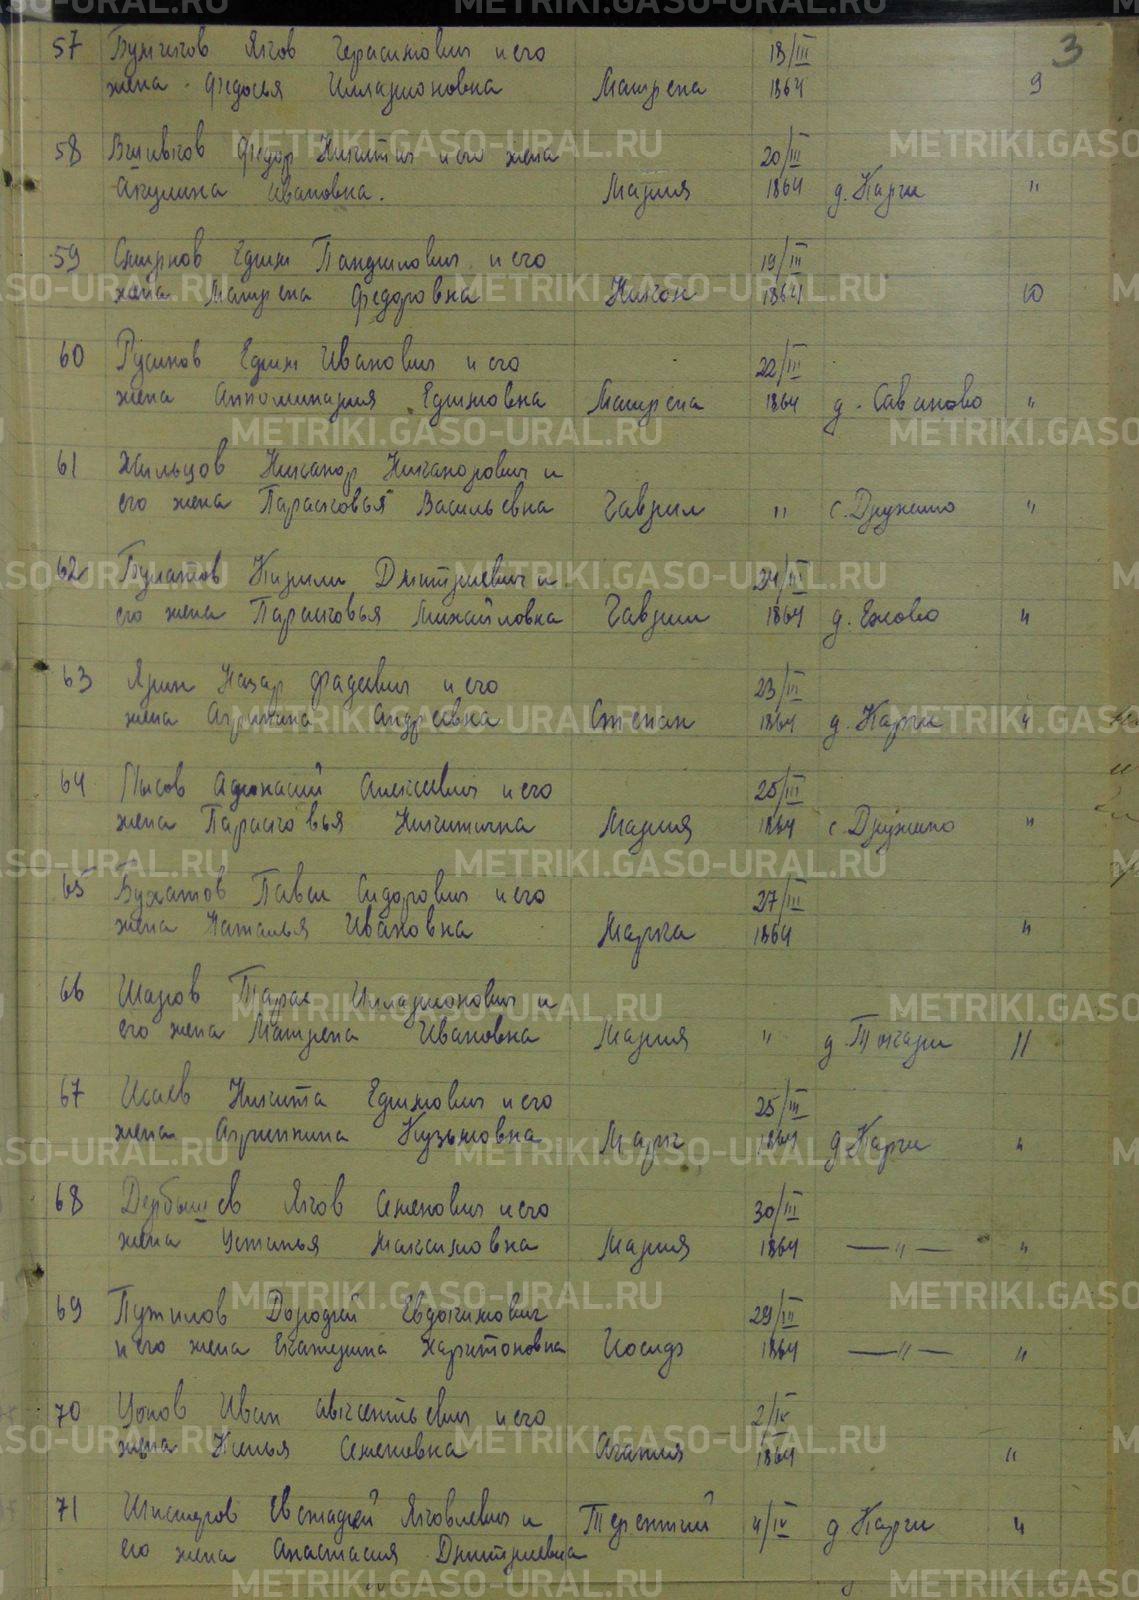 3
57 Бунчиков Яков Герасимович и его 13/III
жена - Федосья Илларионовна Матрена 1864 9
58 Вшивков Федор Никитич и его жена 20/III
Акулина Ивановна. Мария 1864 д. Карги "
59 Смирнов Ефим Панфилович и его 19/III
жена Матрена Федоровна Никон 1864 10
60 Русинов Ефим Иванович и его 22/III
жена Апполинария Ефимовна Матрена 1864 д. Савиново "
61 Жильцов Никанор Никанорович и
его жена Парасковья Васильевна Гаврил " с. Дружино "
62 Булатов Кирилл Дмитриевич и 24/III
его жена Парасковья Михайловна Гаврил 1864 д. Ежово "
63 Ярин Назар Фадеевич и его 23/III
жена Агрипина Андреевна Степан 1864 д. Карги "
64 Лысов Афонасий Алексеевич и его 25/III
жена Парасковья Никитична Мария 1864 с. Дружино "
65 Павел Сидорович и его 27/III
жена Наталья Ивановна Марка 1864 "
66 Шаров Тарас Илларионович и
его жена Матрена Ивановна Мария " д. Токари 11
67 Исаев Никита Ефимович и его 25/III
жена Агрипина Кузьмовна Марк 1864 д. Карги "
68 Дербышев Яков Семенович и его 30/III
жена Устинья Максимовна Мария 1864 —"— "
69 Путилов Дорофей Евдокимович 29/III
и его жена Екатерина Харитоновна Иосиф 1864 —"— "
70 Иван Авксентьевич и его 2/IV
жена Семеновна Агапия 1864 "
71 Евстафей Яковлевич и Терентий 4/IV д. Карги "
его жена Анастасия Дмитриевна
METRIKI.GASO-URAL.RU